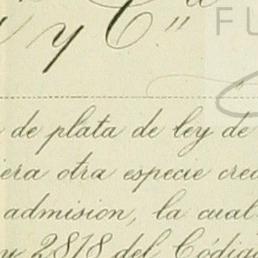 y C"
FU
de plata de ley de
iera otra especie crea
admision, la cual
2818 del Códig